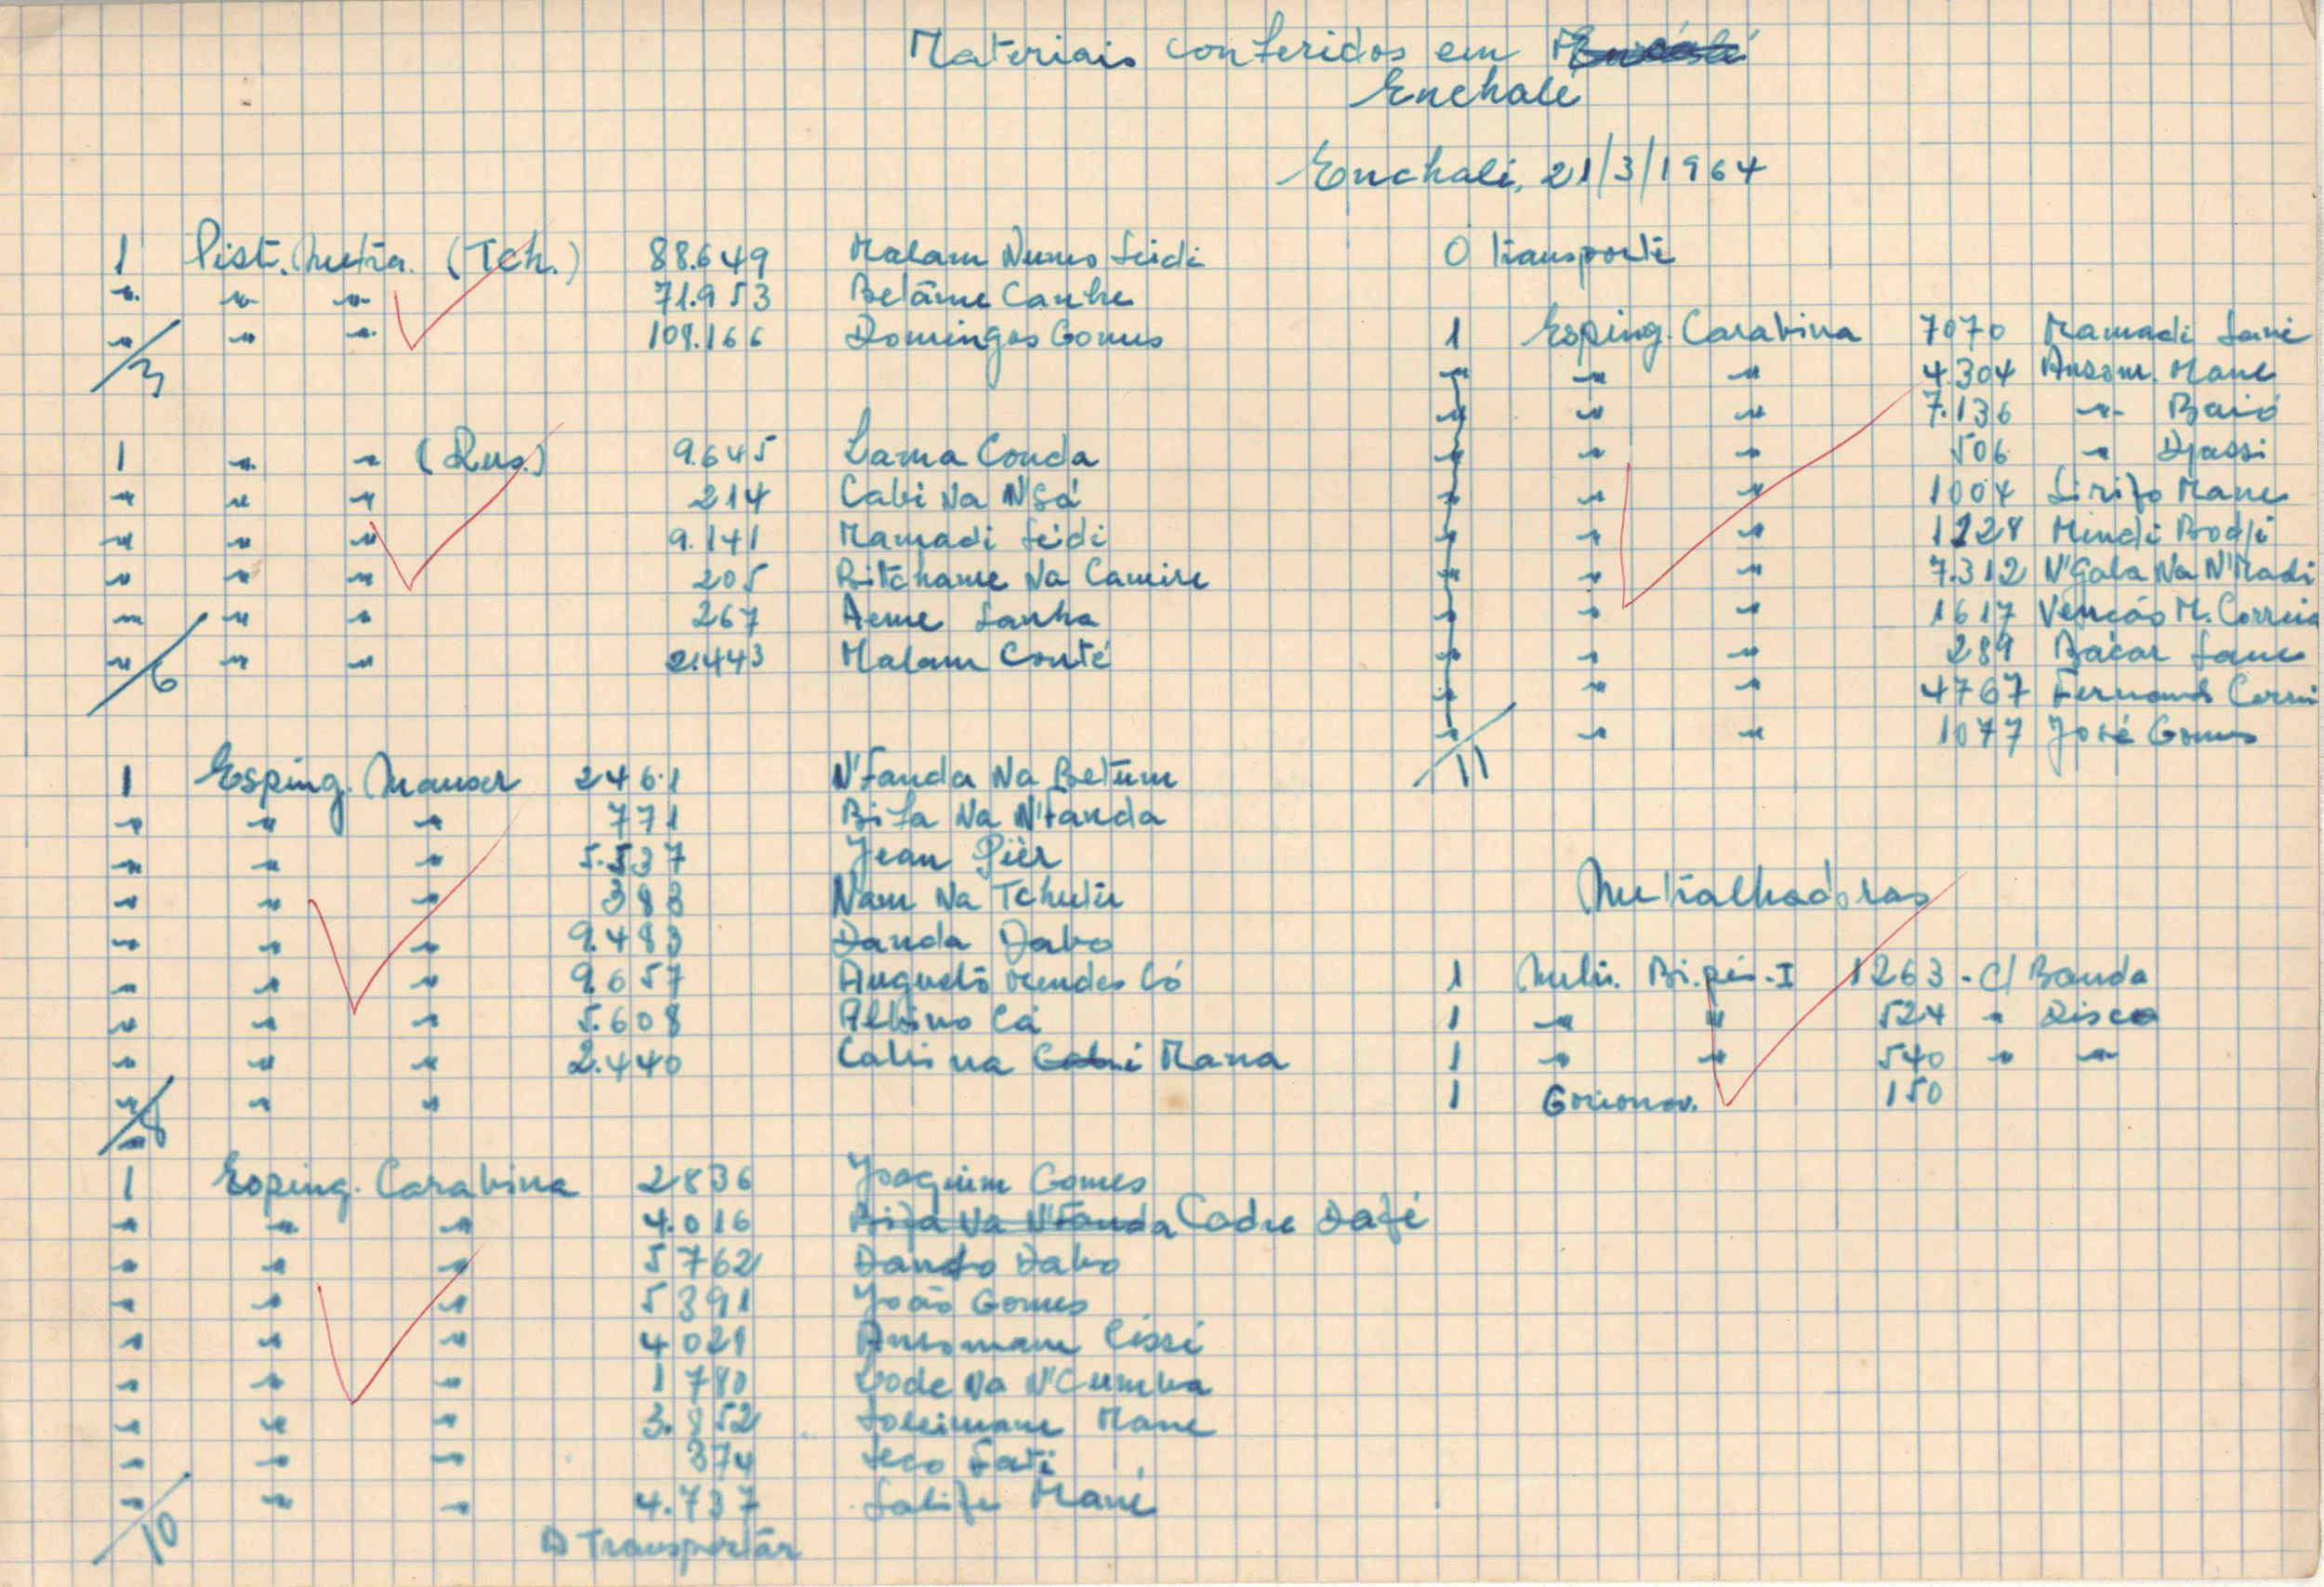 Materiais conferidos em
Enchalé
Enchalé, 21/3/1964
1 Pist. Metra. (Tch.) 88.649 Malam Numo Seidi
" " " 71.953 Betãme Canhe
" " " 109.166 Domingos Gomes
3
1 " " (Rus.) 9.645 Lama Conda
" " " 214 Cabi Na N'Sá
" " " 9.141 Mamadi Seidi
" " " 205 Bitchame Na Camire
" " " 267 Aeme Sanha
" " " 2.443 Malam Conté
6
1 Esping. Mauser 2461 N'Fanda Na Betum
" " " 771 Bifa Na N'Fanda
" " " 5.537 Jean Pièr
" " " 383 Nam Na Tchutu
" " " 9.483 Danda Dabo
" " " 9.657 Augusto Mendes Có
" " " 5.608 Albino Cá
" " " 2.440 Cabi na Cabi Mana
" " "
8
1 Esping. Carabina 2836 Joaquim Gomes
" " " 4.016 Bifa Na N'Fanda Codre Dafé
" " " 5762 Danso Dabo
" " " 5391 João Gomes
" " " 4021 Ansomane Cissé
" " " 1780 Code Na N'Cumba
" " " 3.852 Soleimane Mane
" " " 374 Seco Fati
" " " 4.737 Salifo Mané
10
A Transportar
O transporte
1 Esping. Carabina 7070 Mamadi Sané
" " " 4.304 Ansom. Mane
" " " 7.136 " Baió
" " " 506 " Djassi
" " " 1004 Sirifo Mane
" " " 1228 Mindi Bodji
" " " 7.312 N'Gala Na N'Madi
" " " 1617 Vençãs M. Correia
" " " 289 Bácar Sane
" " " 4767 Fernand
" " " 1077 José Gomes
11
Metralhadoras
1 Metr. Bi.pés-I 1263 - C/ Banda
1 " " 524 " Disco
1 " " 540 " "
1 Gorionov. 150